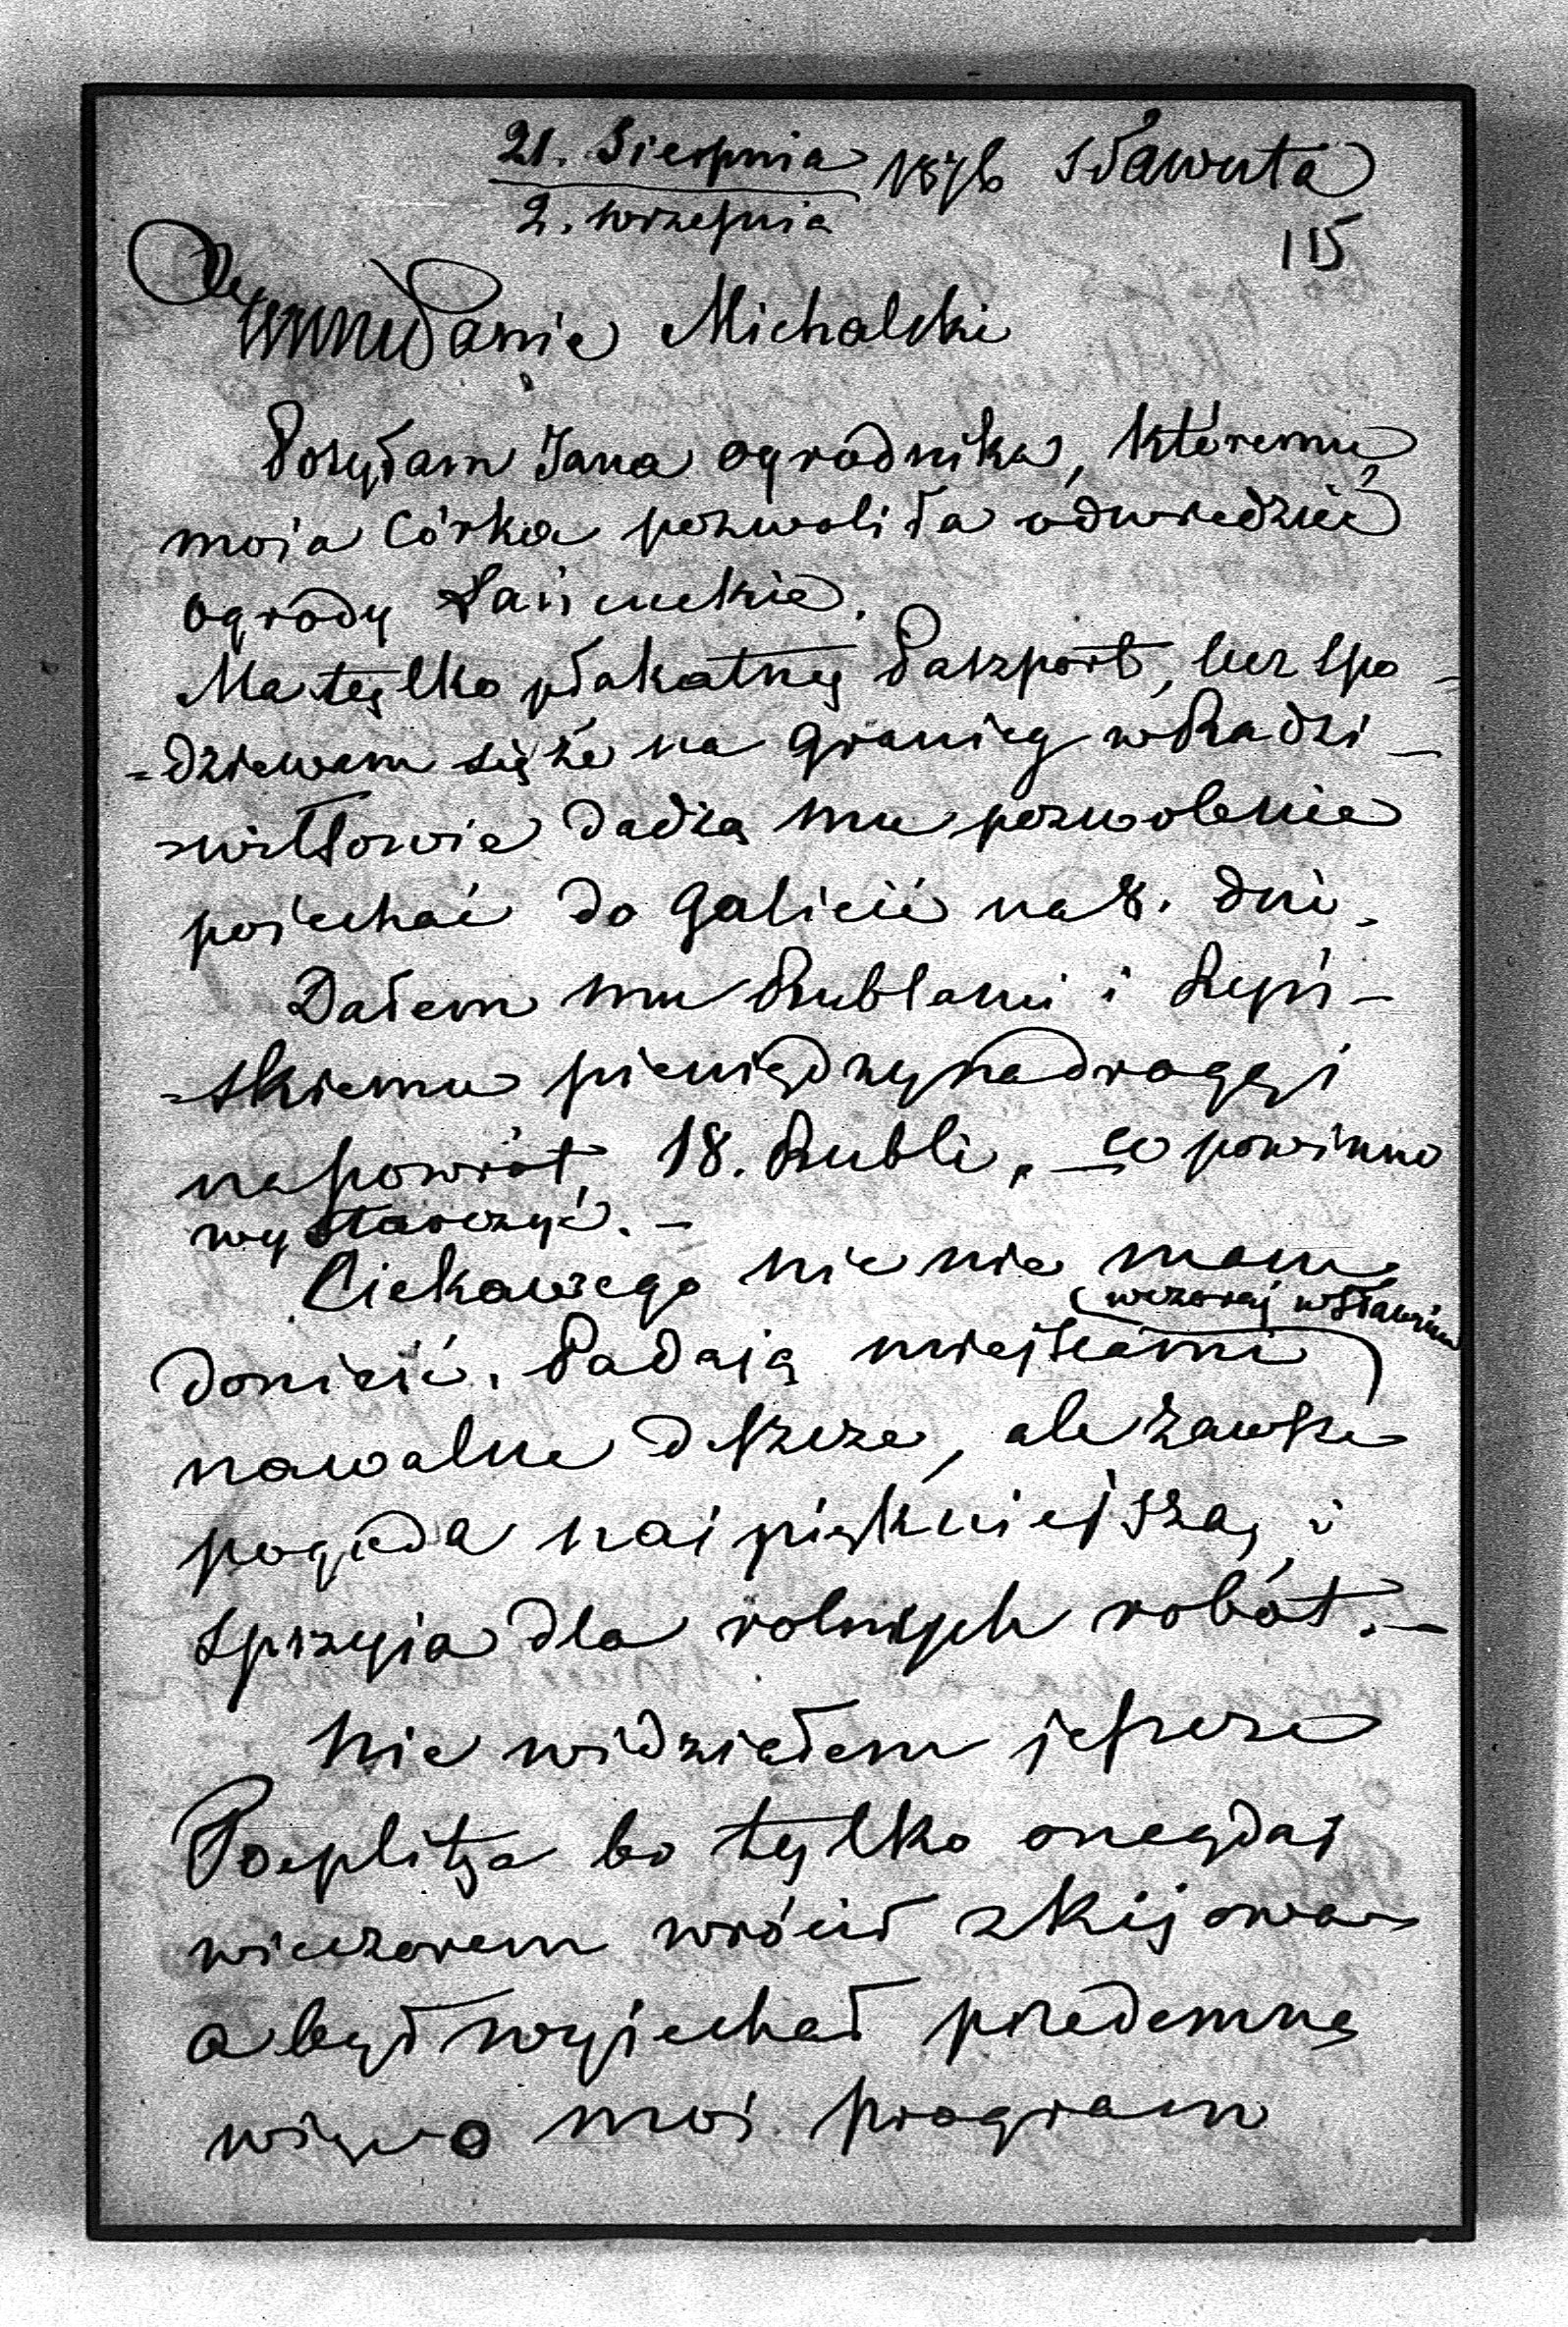 21. Sierpnia 1876 Sławuta
2. września
115
Panie Michalski
Posyłam Jana ogrodnika, któremu
moia Córka pozwoliła odwiedzić
ogrody Łańcuckie.
Ma tylko plakatny Paszport, lecz spo-
=dziewam się że na Granicy w Radzi-
=wiłłowie dadzą mu pozwolenie
poiechać do Galicii na 8. dni.
Dałem mu Rublami i
=skiemu pieniędzy na drogę i
na powrót 18. Rubli, – co powinno
wystarczyć. –
Ciekawego nic nie mam
(wczoraj w Sławucie)
donieść. Padają miejscami
nawalne deszcze, ale zawsze
pogoda naipiękniejsza, i
sprzyia dla rolnych robót. –
Nie widziałem jeszcze
Toeplitza bo tylko onegdaj
wieczorem wrócił z Kijowa
a był wyjechał przedemną
więc o moi program